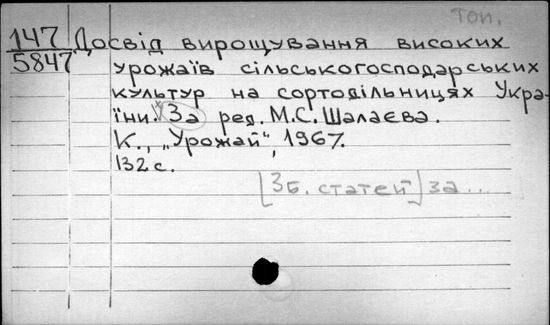 Топ.
147 Досвід вирощування високих
5847 урожаїв сільськогосподарських
культур на сортодільницях Укра-
їни. За ред. М.С. Шалаєва.
К., „Урожай", 1967.
132 с.
[Зб. статей] за ...